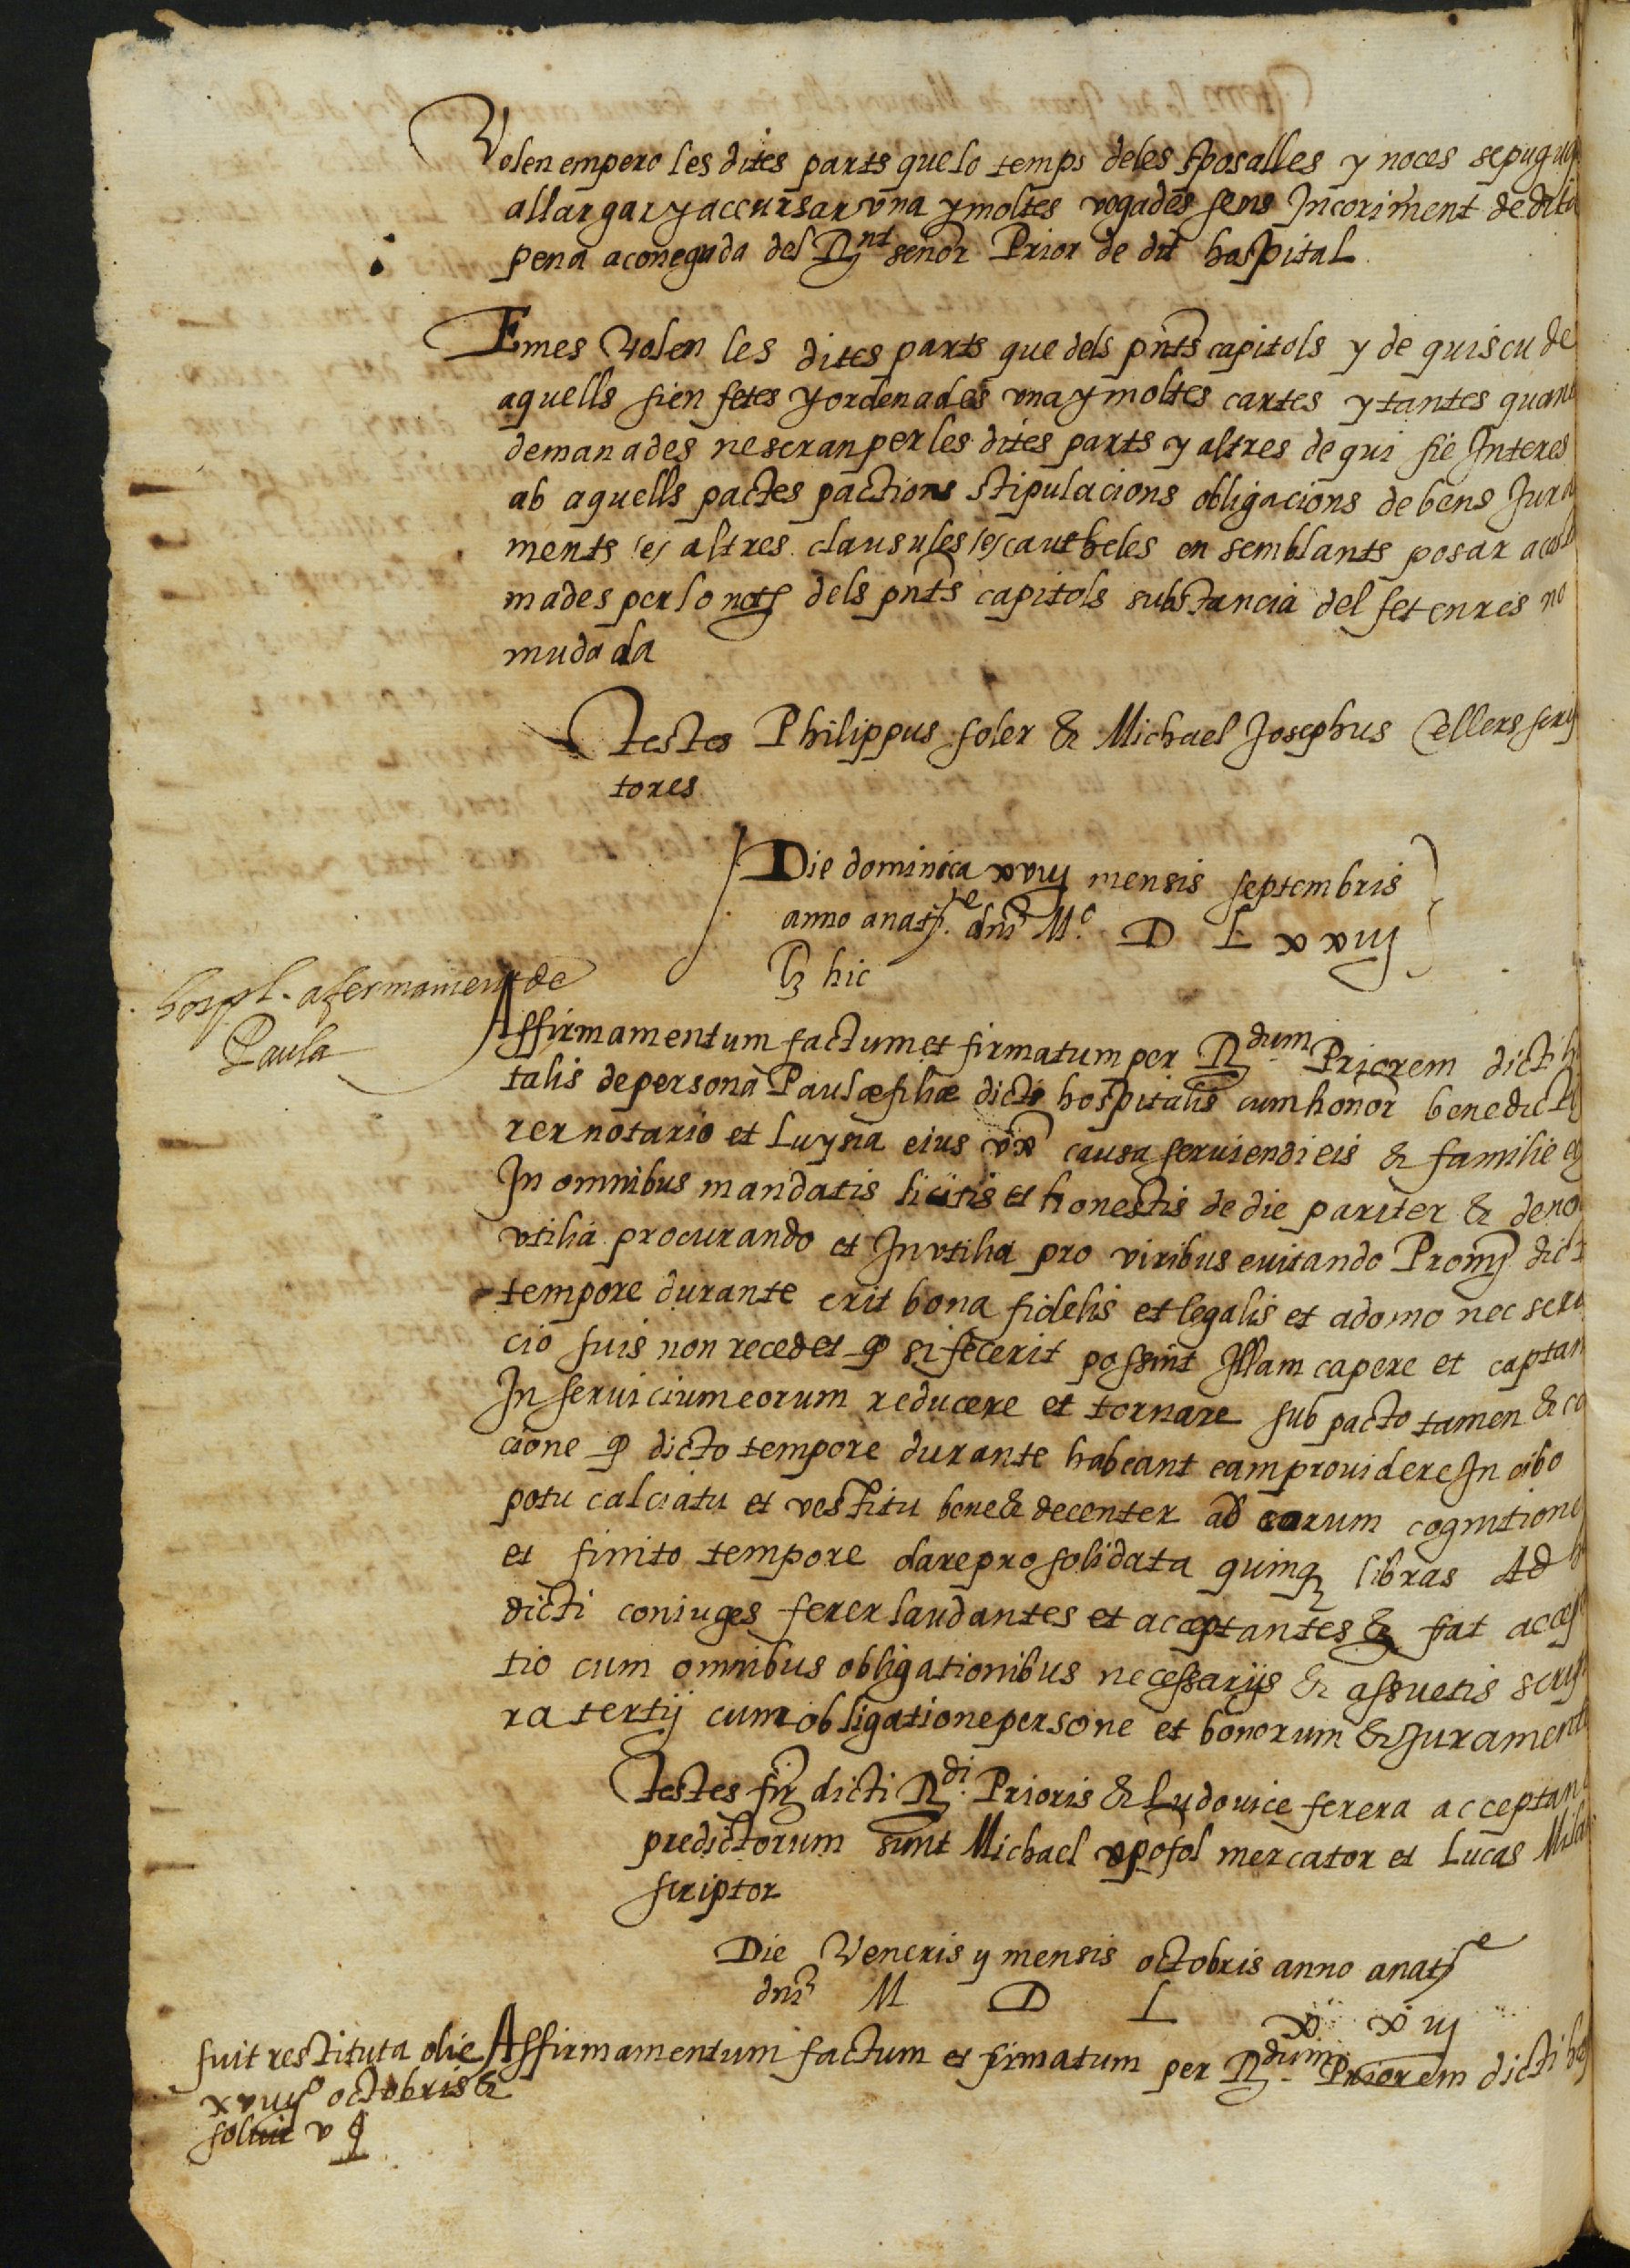 Volen empero les dites parts que lo temps deles sposalles y noces se pugue
allargar y accursar vna y moltes vogades sens Incoriment de dita
pena a coneguda del Rnt señor Prior de dit hospital
E mes volen les dites parts que dels pnts capitols y de quiscu de
aquells sien fetes y ordenades vna y moltes cartes y tantes quant
demanades ne seran per les dites parts y altres de qui sie Interes
ab aquells pactes pactions stipulacions obligacions de bens Jura
ments /e/ altres clausules /e/ cautheles en semblants posar acostu
mades per lo not dels pnts capitols substancia del fet en res no
mudada
Testes Philippus soler & Michael Josephus Cellers scrip
tores
Die dominica xxviij mensis septembris
anno a natte dni Mº D L xxiij
lz hic
hospl. afermament de
Paula
Affirmamentum factum et firmatum per Rdum Priorem dicti h
talis de persona Paulæ filiæ dicti hospitalis cum honor benedicto
rer notario et Luysia eius vx causa seruiendi eis & familie e
In omnibus mandatis licitis et honestis de die pariter & de no
vtilia procurando et Invtilia pro viribus euitando Promi dict
tempore durante erit bona fidelis et legalis et a domo nec serui
cio suis non recedet qp si fecerit possint Illam capere et captam
In seruicium eorum reducere et tornare sub pacto tamen & co
cione qp dicto tempore durante habeant eam prouidere In cibo
potu calciatu et vestitu bene & decenter ad earum cognitione
et finito tempore dare pro solidata quinq libras Ad h
dicti coniuges ferer laudantes et acceptantes & fiat accep
tio cum omnibus obligationibus necessarijs & assuetis scrip
ra tertij cum obligatione persone et bonorum & Juramento
Testes fir dicti Rdi Prioris & Ludouice ferera acceptan
predictorum sunt Michael vpofol mercator et Lucas Mila
scriptor
Die Veneris ij mensis octobris anno a natte
dni M D L x x iij
fuit restituta die
xxviijº octobris &
soluit v
Affirmamentum factum et firmatum per Rdum Priorem dicti hos